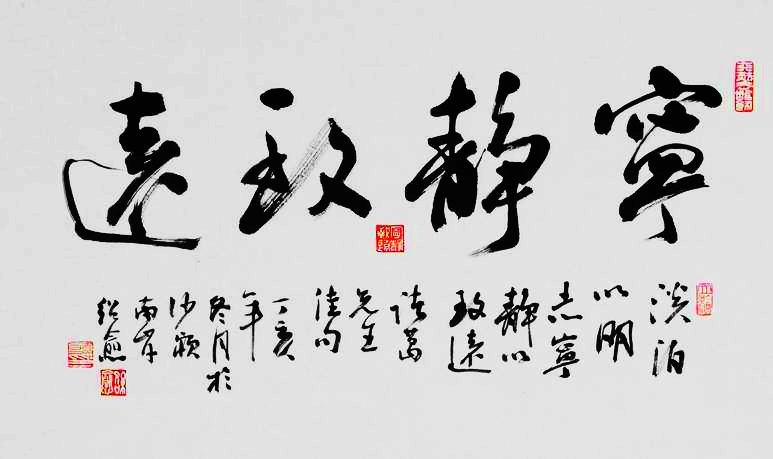 寧靜致遠
淡泊
以明
志寧
靜以
致遠
諸葛
先生
佳句
丁亥
年
冬月於
沙颍
南岸